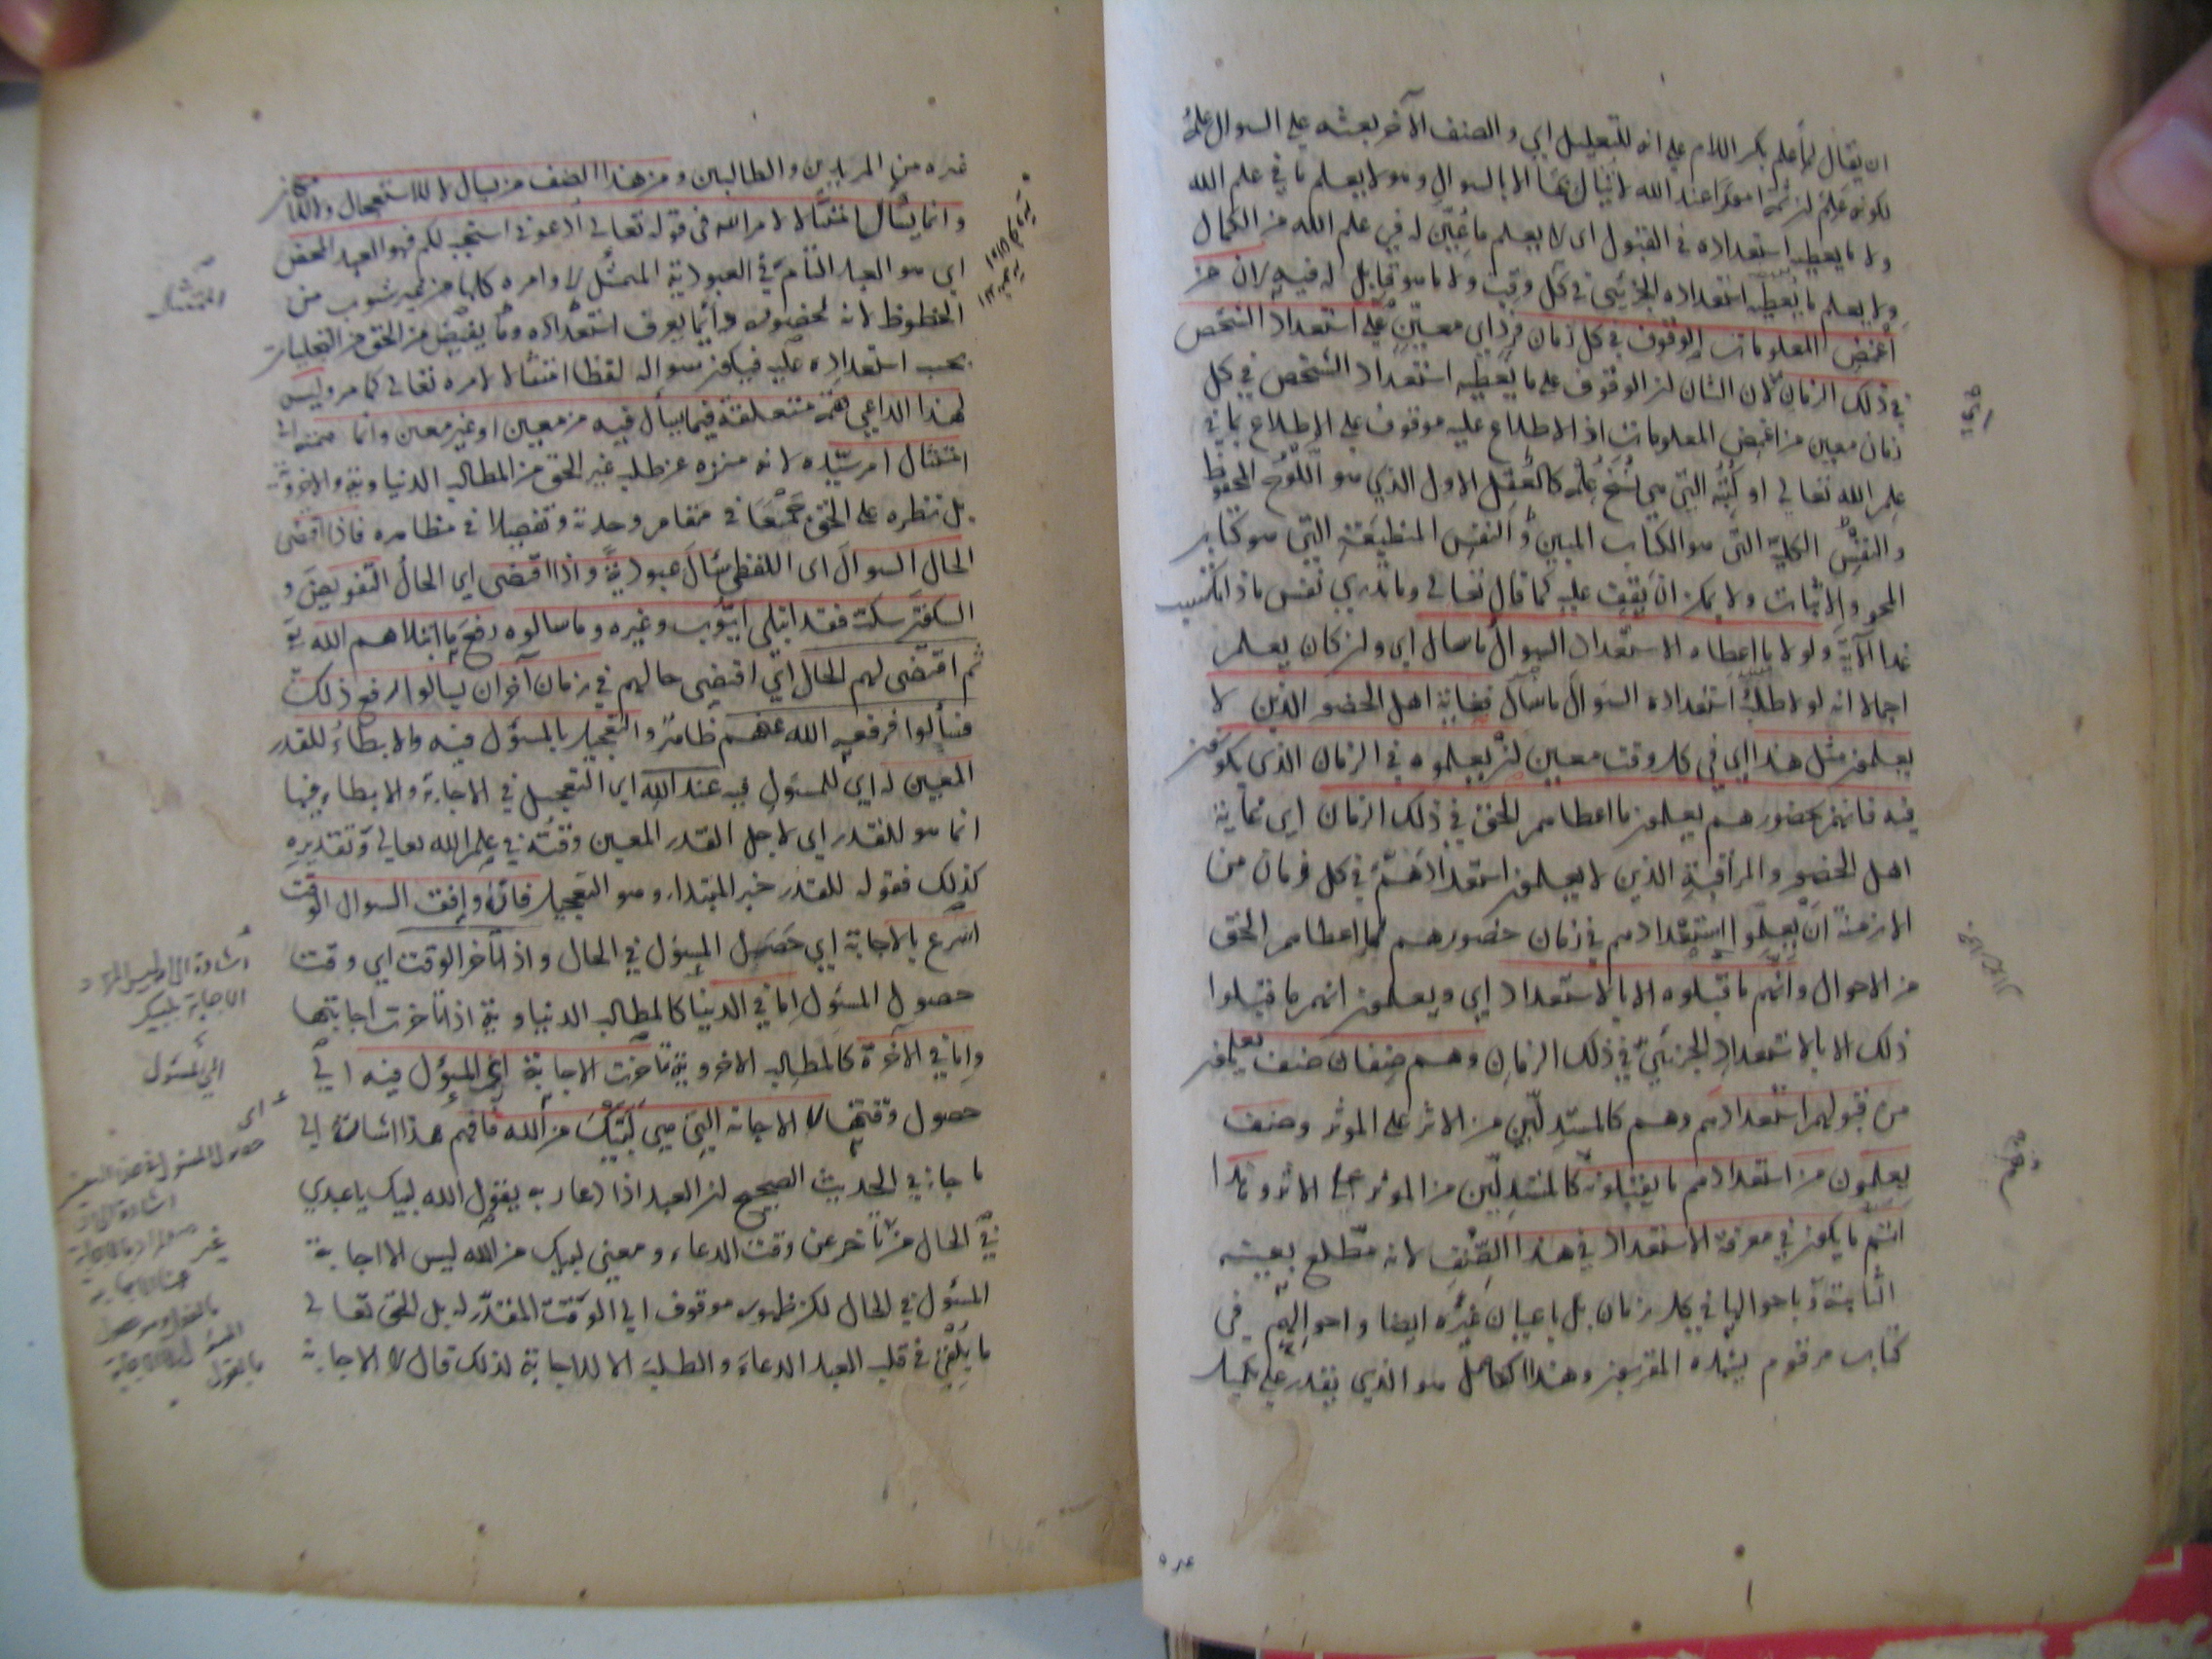 ان يقال لما علم بكسر اللام على انه للتعليل اي والصنف الآخر بعثه على السوال علمه
لكونه علم ان ثمة امورا عند الله لا ينال بها الا بالسوال وهو لا يعلم ما في علم الله
ولا ما يعطيه استعداده في القبول اى لا يعلم ما عين له في علم الله من الكمال
ولا يعلم ما يعطيه استعداده الجزئي في كل وقت ولا ما هو قابل له فيه لان من
اغمض المعلومات الوقوف في كل زمان فرد اي معين على استعداد الشخص
في ذلك الزمان لان الشان ان الوقوف على ما يعطيه استعداد الشخص في كل
زمان معين من اغمض المعلومات اذ الاطلاع عليه موقوف على الاطلاع بما في
علم الله تعالى او كتبه التي هي نسخ علمه كالعقل الاول الذي هو اللوح المحفوظ
والنفس الكلية التي هو الكتاب المبين والنفس المنطبعة التي هو كتاب
المحو والاثبات ولا يمكن ان يقف عليه كما قال تعالى وما تدري نفس ماذا تكسب
غدا الآية ولولا ما اعطاه الاستعداد السوال ما سال اي وان كان يعلم
اجمالا انه لولا طلب استعداده السوال ما سال فغاية اهل الحضور الذين لا
يعلمون مثل هذا اي في كل وقت معين ان يعلموه في الزمان الذي يكونون
فيه فانهم بحضورهم يعلمون ما اعطاهم الحق في ذلك الزمان اي غاية
اهل الحضور والمراقبة الذين لا يعلمون استعدادهم في كل زمان من
الازمنة ان يعلموا استعدادهم في زمان حضورهم بما اعطاهم الحق
من الاحوال وانهم ما قبلوه الا بالاستعداد اي ويعلمون انهم ما قبلوا
ذلك الا بالاستعداد الجزئي في ذلك الزمان وهم صنفان صنف يعلمون
من قبولهم استعدادهم وهم كالمستدلين من الاثر على الموثر وصنف
يعلمون من استعدادهم ما يقبلونه كالمستدلين من الموثر على الاثر وهذا
اتم ما يكون في معرفة الاستعداد في هذا الصنف لانه مطلع بعينه
الثابتة وباحوالها في كل زمان بل باعيان غيره ايضا واحوالهم في
كتاب مرقوم يشهده المقربون وهذا الكامل هو الذي يقدر على تكميل
غيره
غيره من المريدين والطالبين ومن هذا الصنف من يسال لا للاستعجال ولا للامكان
وانما يسأل امتثالا لامر الله في قوله تعالى ادعوني استجب لكم فهو العبد المحض
اي هو العبد التام في العبودية الممتثل لاوامره كلها من غير شوب من
الحظوظ لانه لحضوره دائما يعرف استعداده وما يفيض من الحق من التجليات
بحسب استعداده عليه فيكون سواله لفظا امتثالا لامره تعالى كما مر وليس
لهذا الداعي همة متعلقة فيما يسال فيه من معين او غير معين وانما همته في
امتثال امر سيده لانه منزه عن طلب غير الحق من المطالب الدنياوية والاخروية
بل نظره على الحق جمعا في مقام وحدته وتفصيلا في مظاهره فاذا اقتضى
الحال السوال اى اللفظي سأل عبودية واذا اقتضى اي الحال التفويض و
السكوت سكت فقد ابتلى ايوب وغيره وما سالوه رفع ما ابتلاهم الله به
ثم اقتضى لهم الحال اي اقتضى حالهم في زمان آخر ان يسالوا رفع ذلك
فسألوا فرفعه الله عنهم والتعجيل بالمسؤل فيه والابطاء للقدر
المعين له اي للمسئول فيه عند الله اي التعجيل في الاجابة والابطاء فيها
انما هو للقدر اي لاجل القدر المعين وقته في علم الله تعالى وتقديره
كذلك فقوله للقدر خبر المبتداء وهو التعجيل فاذا وافق السوال الوقت
اسرع بالاجابة اي حصل المسؤل في الحال واذا تأخر الوقت اي وقت
حصول المسؤل اما في الدنيا كالمطالب الدنياوية اذا تأخرت اجابتها
واما في الآخرة كالمطالب الاخروية تأخرت الاجابة اي المسؤل فيه الى
حصول وقتها لا الاجابة التي هي لبيك من الله فافهم هذا اشارة الى
ما جاء في الحديث الصحيح ان العبد اذا دعا ربه يقول الله لبيك يا عبدي
في الحال من تأخر عن وقت الدعاء ومعنى لبيك من الله ليس الا اجابة
المسؤل في الحال لكن ظهوره موقوف الى الوقت المقدر له بل الحق تعالى
ما يلقي في قلب العبد الدعاء والطلب الا للاجابة لذلك قال لا الاجابة
الممتثل
الى المسئول